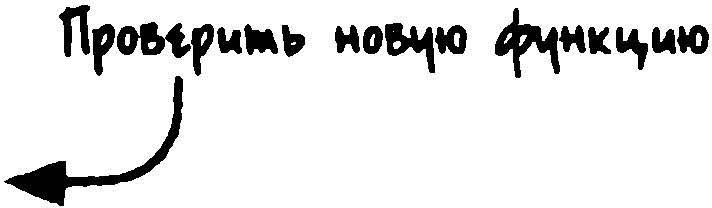 Проверить новую функцию